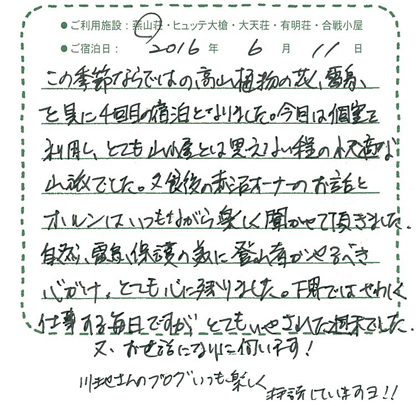 ●ご利用施設：燕山荘・ヒュッテ大槍・大天荘・有明荘・合戦小屋
●ご宿泊日： 2016 年 6 月 11 日
この季節ならではの、高山植物の花、雷鳥、
を見に4回目の宿泊となりました。今回は個室を
利用し、とても山小屋とは思えない程の快適な
山旅でした。又食後の赤沼オーナーのお話と
ホルンはいつもながら楽しく聞かせて頂きました。
自然、雷鳥、保護の為に登山者がやるべき
心がけ、とても心に残りました。下界ではやわしく
仕事する毎日ですが とてもいやされた週末でした。
又、お世話になりに伺います！
川地さんのブログいつも楽しく
拝読していますヨ!!